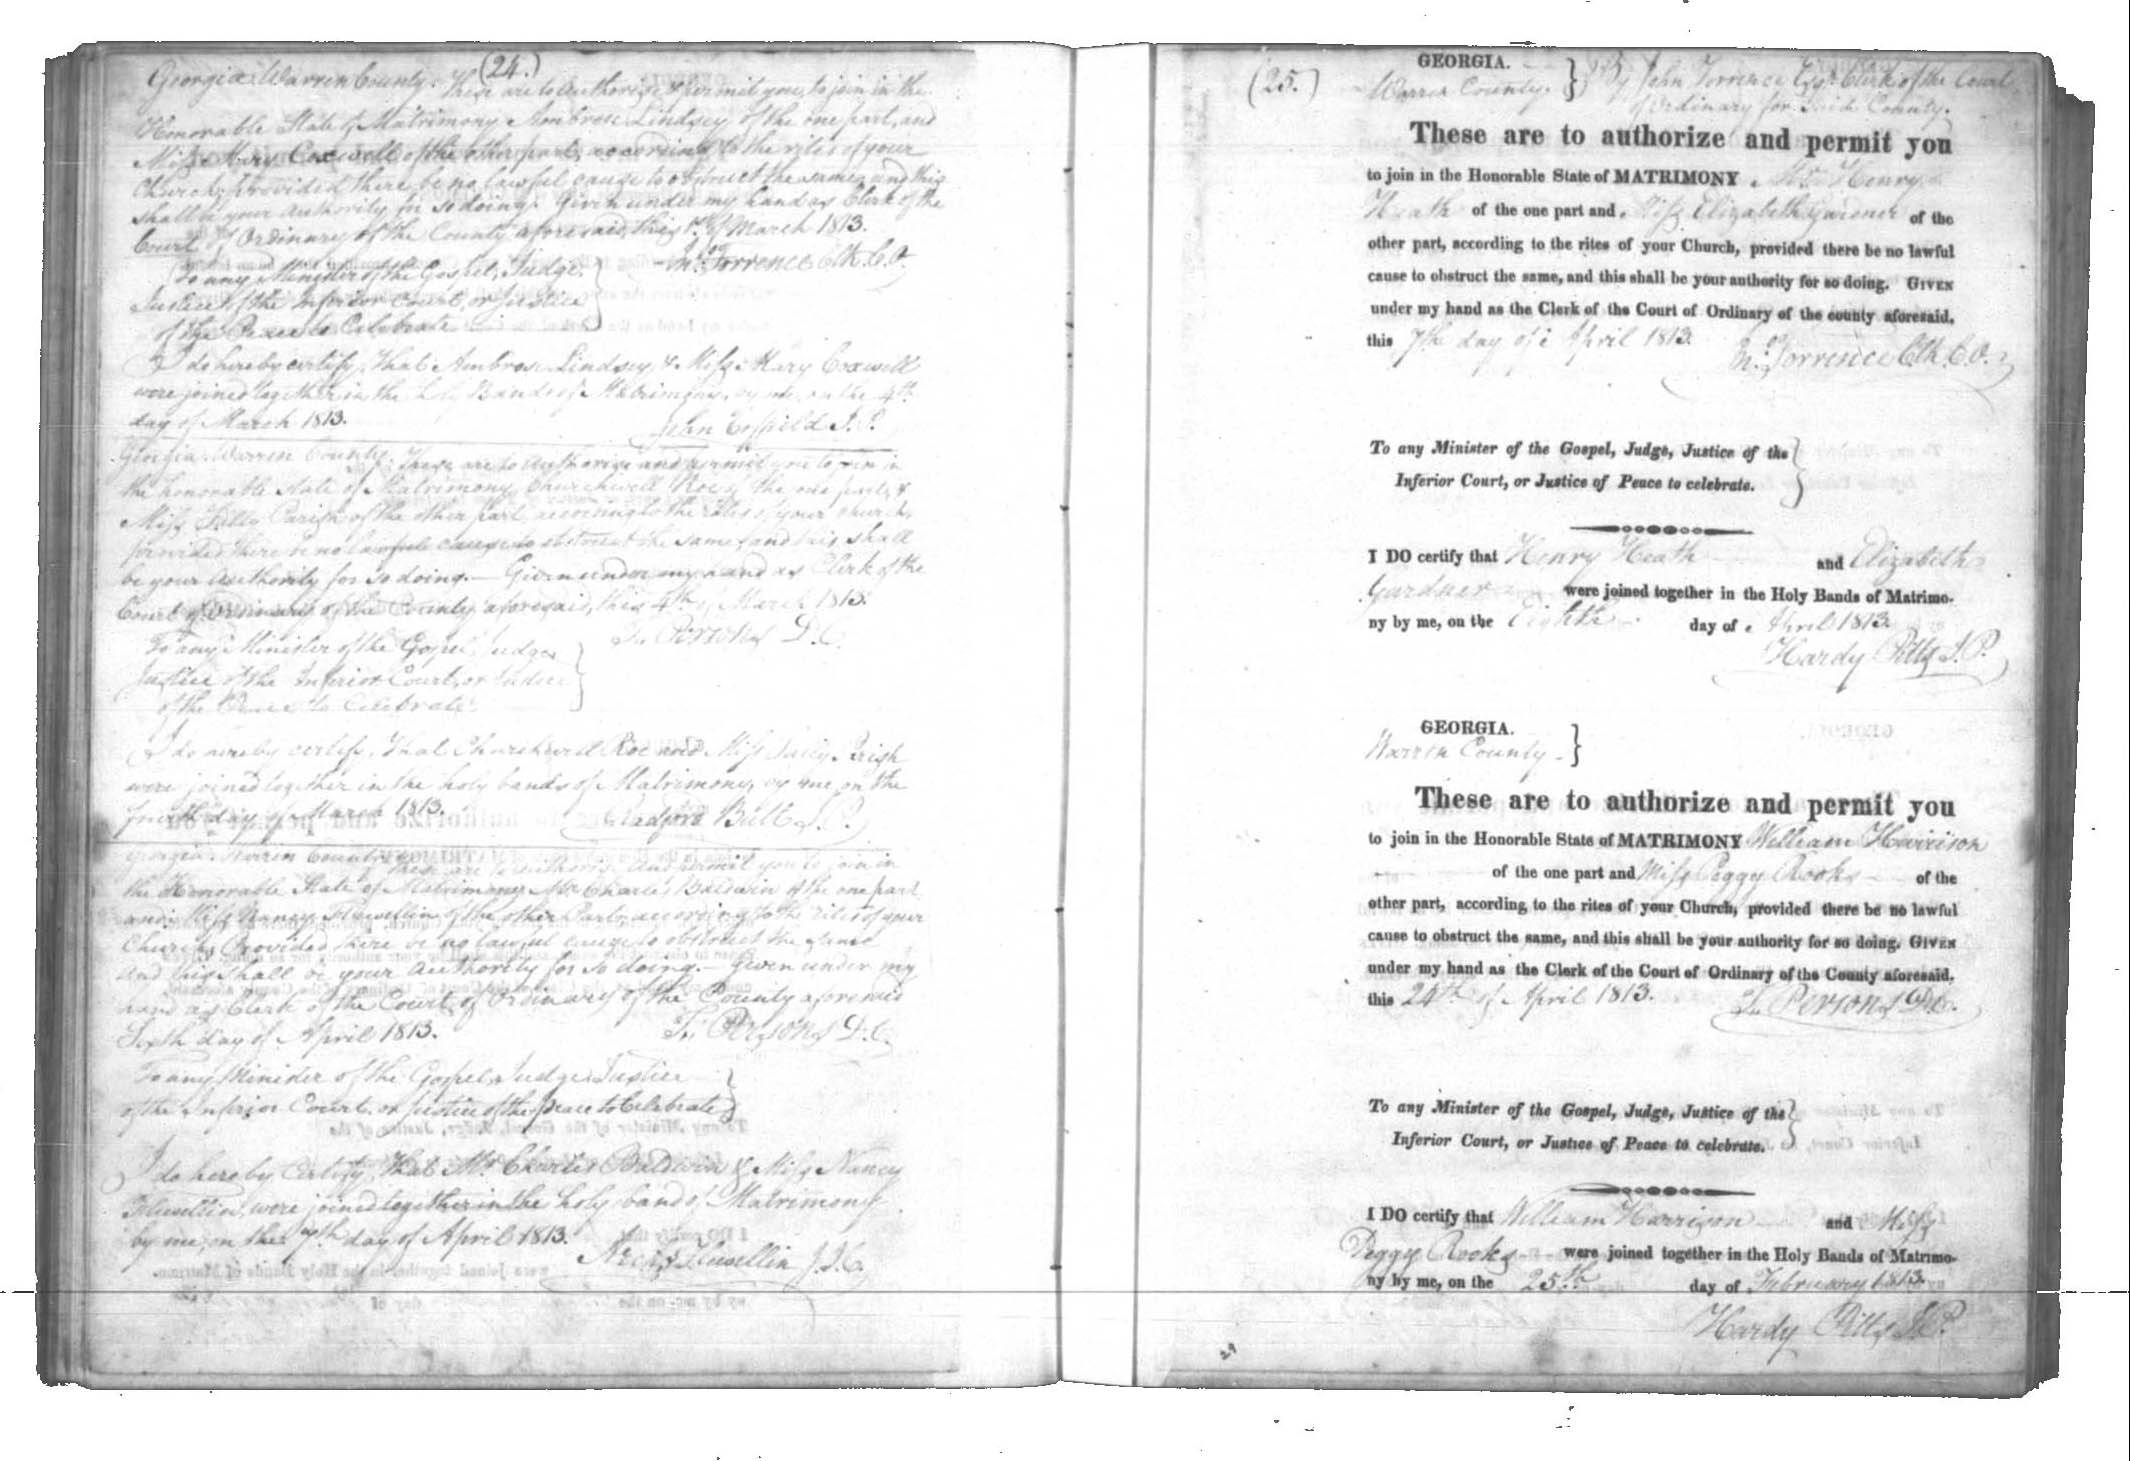 (24.)
Georgia Warren County. These are to authorize & permit you, to join in the
Honorable State of Matrimony Ambrose Lindsey of the one part, and
Miss Mary Coxwell of the other part, according to the rites of your
Church, provided there be no lawful cause to obstruct the same, and this
shall be your authority for so doing. Given under my hand as Clerk of the
Court of Ordinary of the County aforesaid, this 1st of March 1813.
To any Minister of the Gospel, Judge, Jno. Torrence Clk. C. O.
Justice of the Inferior Court, or Justice
of the Peace to Celebrate
I do hereby certify, that Ambrose Lindsey & Miss Mary Coxwell
were joined together in the holy Bands of Matrimony, by me, on the 4th
day of March 1813. John J. P.
Georgia Warren County. These are to authorize and permit you to join in
the honorable State of Matrimony Churchwell Roe of the one part, &
Miss Parish of the other part, according to the rites of your church,
provided there be no lawful cause to obstruct the same, and this shall
be your authority for so doing. — Given under my hand as Clerk of the
Court of Ordinary of the County aforesaid, this 4th of March 1813.
To any Minister of the Gospel, Judge Persons D. C.
Justice of the Inferior Court, or Justice
of the Peace to Celebrate.
I do hereby certify, that Churchwell Roe and Miss
were joined together in the holy bands of Matrimony, by me, on the
fourth day of March 1813. Radford Butt J. P.
Georgia Warren County
These are to authorize and permit you to join in
the Honorable State of Matrimony Mr. Charles Baldwin of the one part
and Miss Nancy Flewellin of the other Part, according to the rites of your
Church, Provided there be no lawful cause to obstruct the same
and this shall be your authority for so doing. — Given under my
hand as Clerk of the Court of Ordinary of the County aforesaid
Sixth day of April 1813. Persons D. C.
To any Minister of the Gospel, Judge, Justice
of the Inferior Court, or Justice of the peace to Celebrate
I do hereby Certify, that Mr. Charles Baldwin & Miss Nancy
Flewellin, were joined together in the holy bands of Matrimony
by me, on the 7th day of April 1813.
Flewellin J. I. C.
(25.)
GEORGIA. By John Torrence Esqr. Clerk of the Court
Warren County. of Ordinary for Said County.
These are to authorize and permit you
to join in the Honorable State of MATRIMONY Mr. Henry
Heath of the one part and Miss Elizabeth Gardner of the
other part, according to the rites of your Church, provided there be no lawful
cause to obstruct the same, and this shall be your authority for so doing. GIVEN
under my hand as the Clerk of the Court of Ordinary of the county aforesaid,
this 7th day of April 1813.
Jno. Torrence Clk. C. O.
To any Minister of the Gospel, Judge, Justice of the
Inferior Court, or Justice of Peace to celebrate.
I DO certify that Henry Heath and Elizabeth
Gardner were joined together in the Holy Bands of Matrimo-
ny by me, on the Eighth day of April 1813.
Hardy Pitts J. P.
GEORGIA.
Warren County
These are to authorize and permit you
to join in the Honorable State of MATRIMONY William Harrison
of the one part and Miss Peggy Rooks of the
other part, according to the rites of your Church, provided there be no lawful
cause to obstruct the same, and this shall be your authority for so doing. GIVEN
under my hand as the Clerk of the Court of Ordinary of the County aforesaid,
this 24th of April 1813. Persons D.C.
To any Minister of the Gospel, Judge, Justice of the
Inferior Court, or Justice of Peace to celebrate.
I DO certify that William Harrison and Miss
Peggy Rooks were joined together in the Holy Bands of Matrimo-
ny by me, on the 25th day of February 1813.
Hardy Pitts J. P.
29